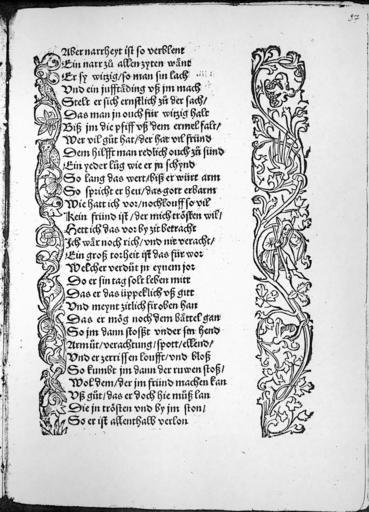 37
Aber narrheyt ist so verblent
Ein narr zů allen zyten wänt
Er sy witzig / so man sin lach
Vnd ein jufftäding vß jm mach
Stelt er sich ernstlich zů der sach /
Das man jn ouch für witzig halt
Biß jm die pfiff vß dem ermel falt /
Wer vil gůt hat / der hat vil fründ
Dem hilfft man redlich ouch zů sünd
Ein yeder lůg wie er jn schynd
So lang das wert / biß er würt arm
So spricht er heu / das gott erbarm
Wie hatt ich vor / nochlouff so vil
Kein fründ ist / der mich trösten wil /
Hett ich das vor by zit betracht
Ich wår noch rich / vnd nit veracht /
Ein groß torheit ist das für wor
Welcher verdůt jn eynem jor
Do er sin tag solt leben mitt
Das er das üppeklich vß gitt
Vnd meynt zitlich firoben han
Das er mög noch dem bättel gan
So jm dann stoßt vnder sin hend
Armůt / verachtung / spott / ellend /
Vnd er zerrissen loufft / vnd bloß
So kumbt jm dann der ruwen stoß /
Wol dem / der jm fründ machen kan
Vß gůt / das er doch hie můß lan
Die jn trösten vnd by jm ston /
So er ist allenthalb verlon